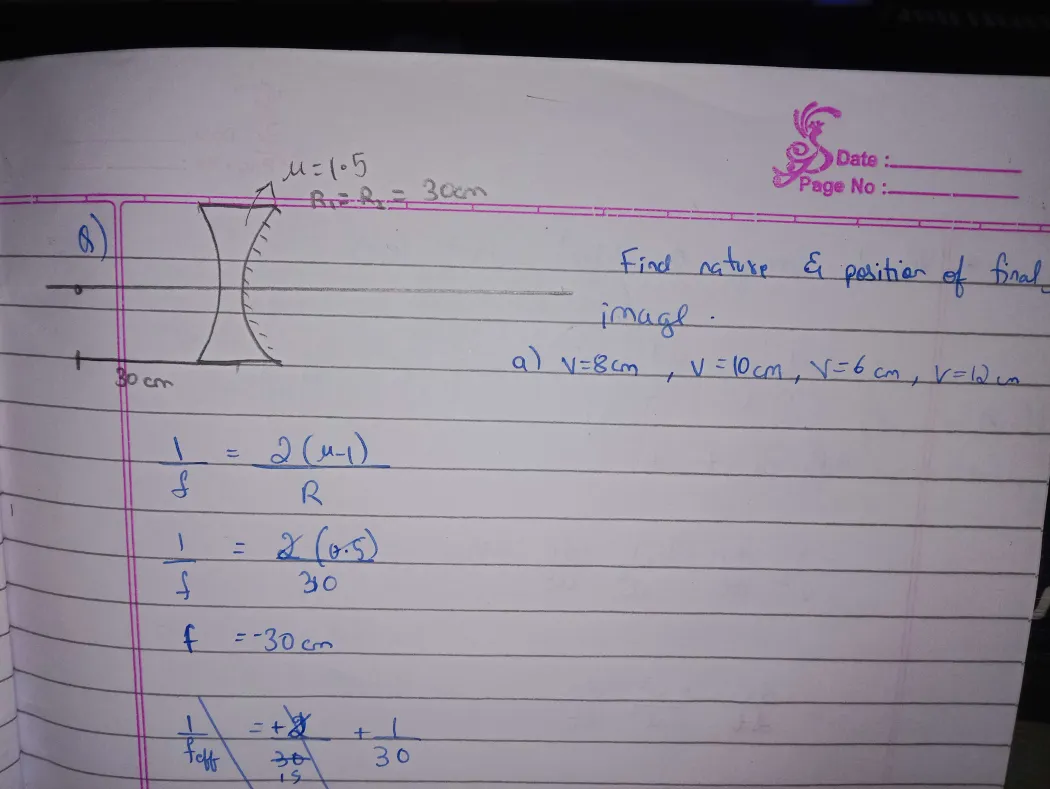 Date :
Page No :
μ = 1.5
R₁ = R₂ = 30cm
Q)
Find nature & position of final
image.
30 cm
a) V=8cm , V=10cm, V=6 cm, V=12 cm
1/f = 2(μ-1)/R
1/f = 2(0.5)/30
f = -30 cm
1/feff = +2/30 15 + 1/30